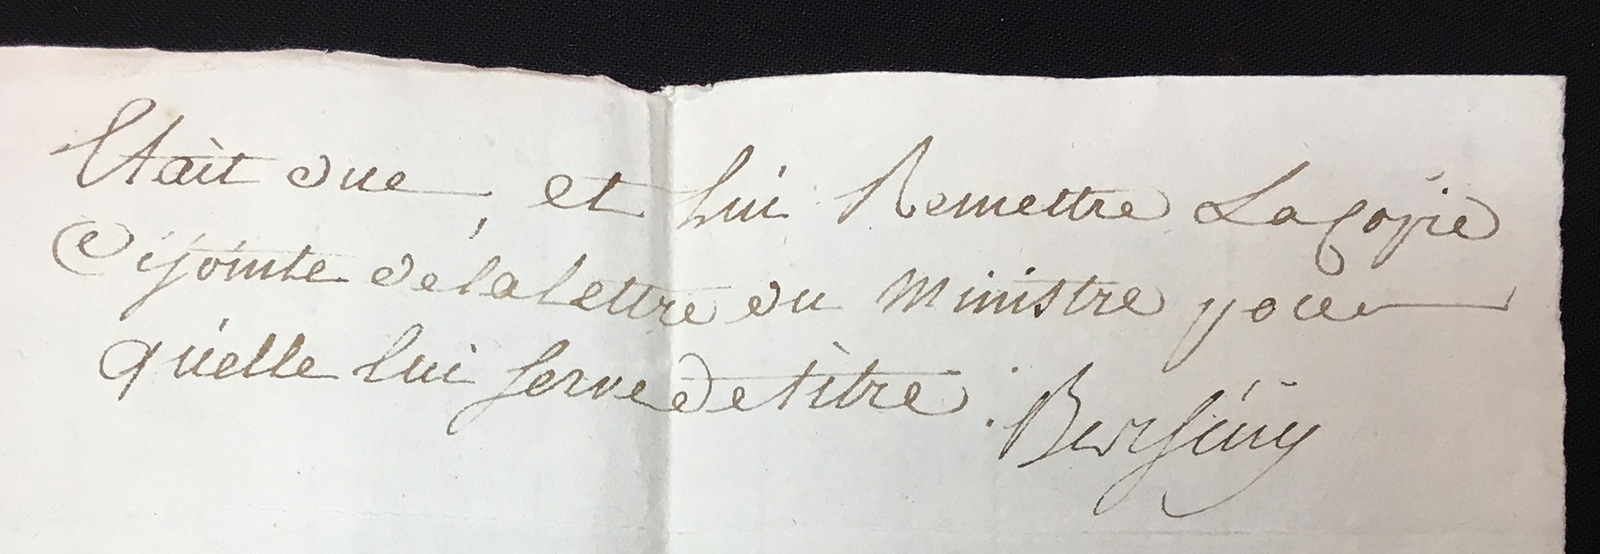 Etait due, et lui Remettre La Copie
Cijointe de la lettre du Ministre pour
qu'elle lui serve de titre.